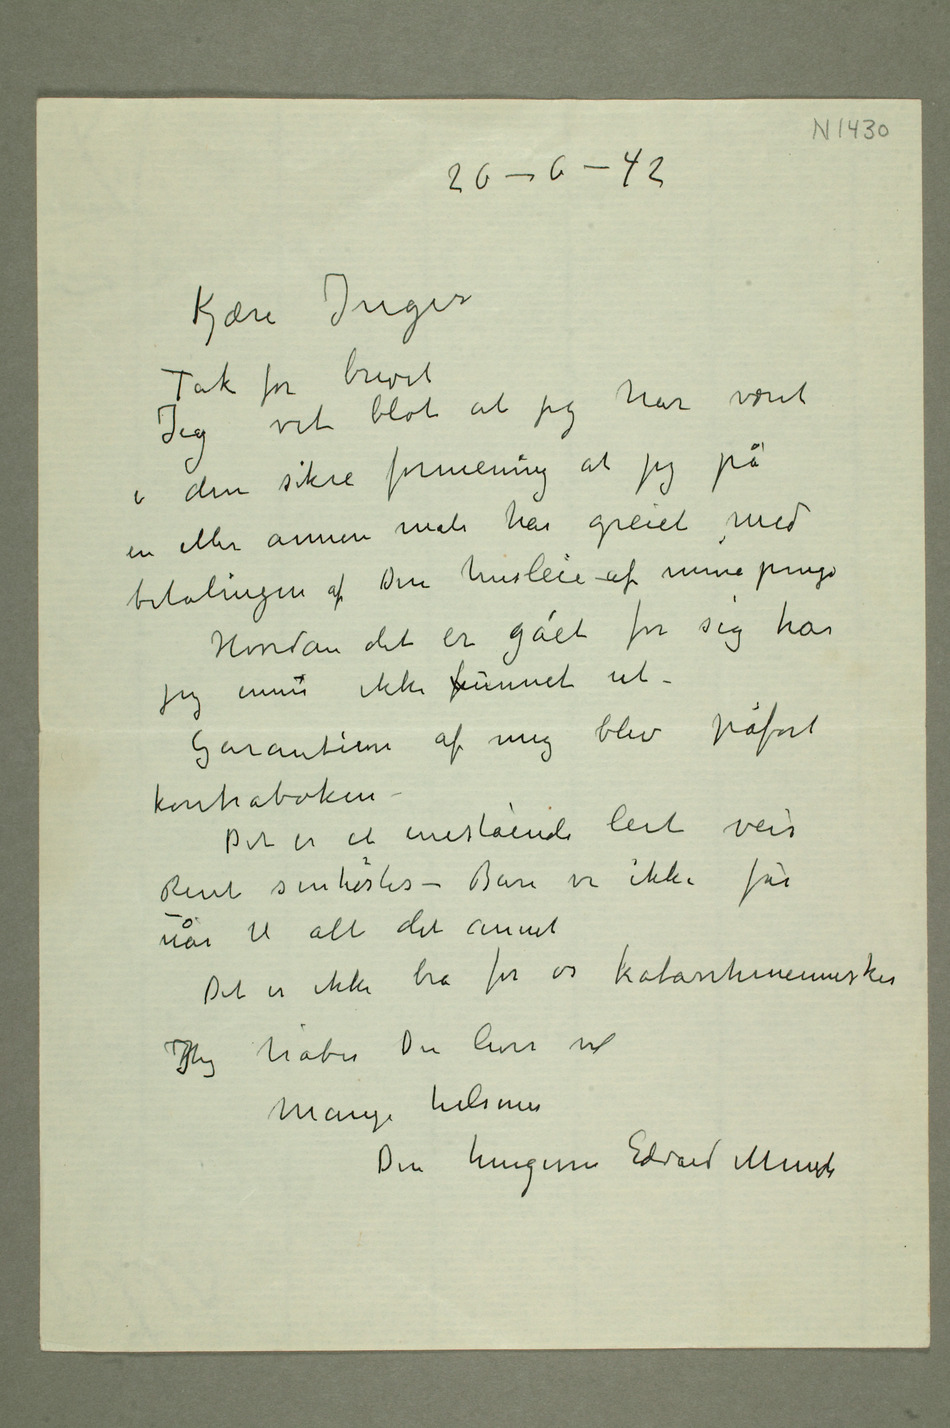 N1430
26–6–42
Kjære Inger
Tak for brevet
Jeg vet blot at jeg har været
i den sikre formening at jeg på
en eller annen måte har greiet med
betalingen af Din husleie – af mine penge
Hvordan det er gået for sig har
jeg ennu ikke funnet ut –
Garantien af mig blev påført
kontraboken –
Det er et enestående leit veir
Rent senhøstes – Bare vi ikke får
uår til alt det annet
Det er ikke bra for os katarrhmennesker
Jeg håber Du lever vel
Mange hilsener
Din hengivne Edvard Munch